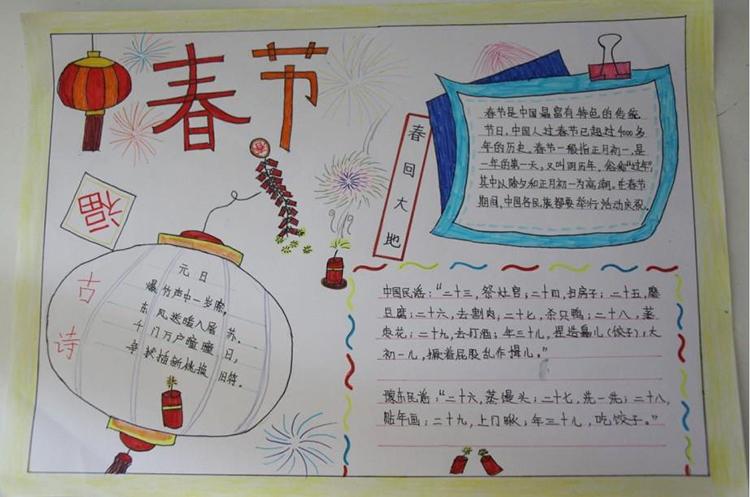 春节
福
春回大地
春节是中国最富有特色的传统
节日,中国人过春节已超过4000多
年的历史。春节一般指正月初一,是
一年的第一天,又叫阴历年,俗称“过年”,
其中以除夕和正月初一为高潮。在春节
期间,中国各民族都要举行活动庆祝。
古诗
元日
爆竹声中一岁除,
东风送暖入屠苏.
千门万户曈曈日,
争插新桃换旧符.
中国民谣:“二十三,祭灶官;二十四,扫房子;二十五,磨
豆腐;二十六,去割肉;二十七,杀只鸭;二十八,蒸
枣花;二十九,去打酒;年三十儿,捏造鼻儿(饺子);大
初一儿,撅着屁股乱作揖儿。”
豫东民谣:“二十六,蒸馒头;二十七,洗一洗;二十八,
贴年画;二十九,上门瞅;年三十儿,吃饺子。”